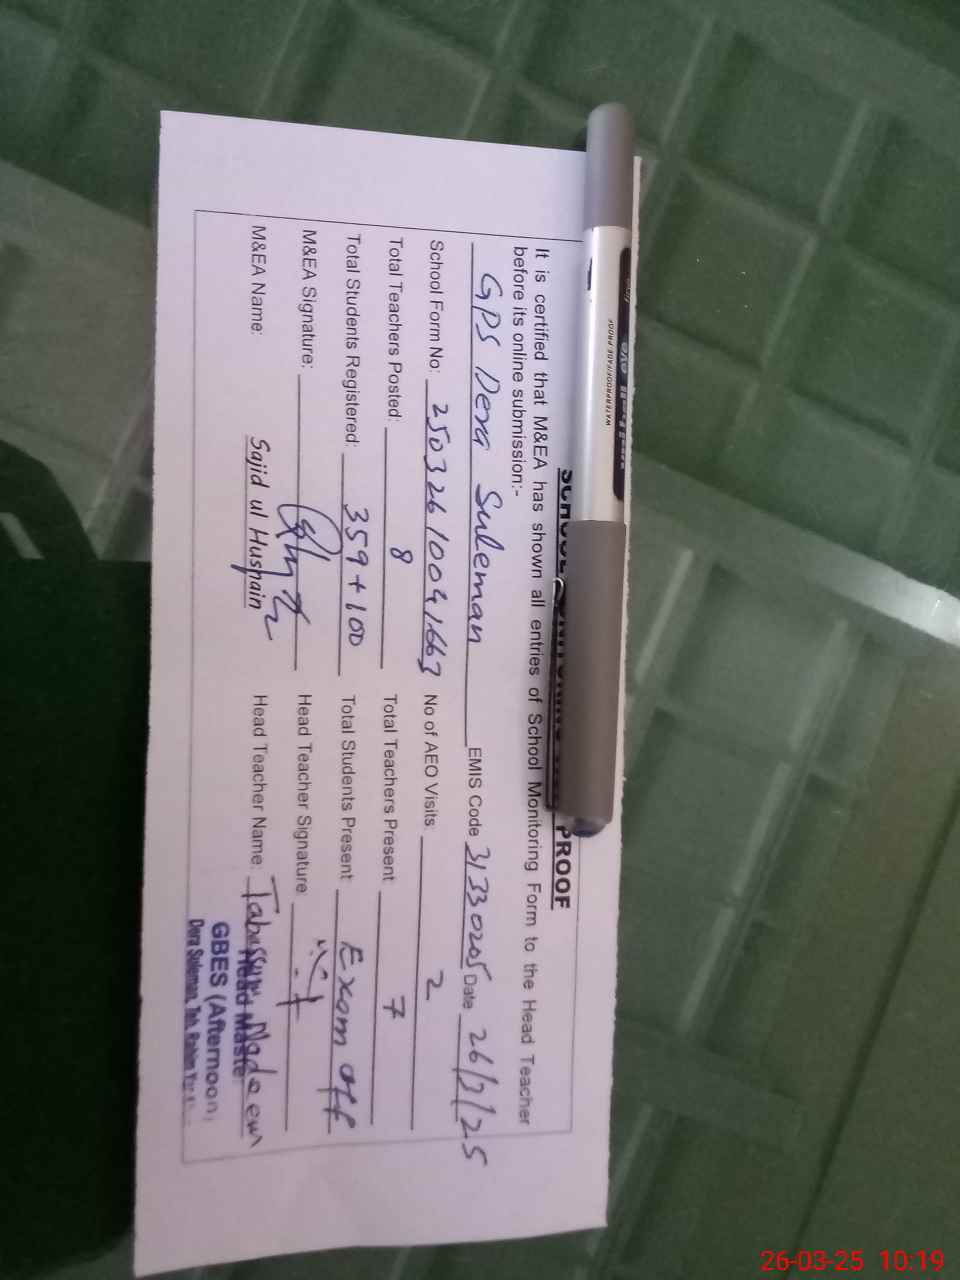 SCHOOL MONITORING VISIT PROOF
It is certified that M&EA has shown all entries of School Monitoring Form to the Head Teacher
before its online submission:-
GPS Dera Suleman EMIS Code 31330205 Date 26/3/25
School Form No: 250326100941663 No of AEO Visits: 2
Total Teachers Posted: 8 Total Teachers Present 7
Total Students Registered: 359+100 Total Students Present Exam off
M&EA Signature: Head Teacher Signature
M&EA Name: Sajid ul Husnain Head Teacher Name: Tabassum Nadeem
Head Master
GBES (Afternoon)
Dera Suleman, Teh. Rahim Yar
eye
WATERPROOF/FADE PROOF
26-03-25 10:19